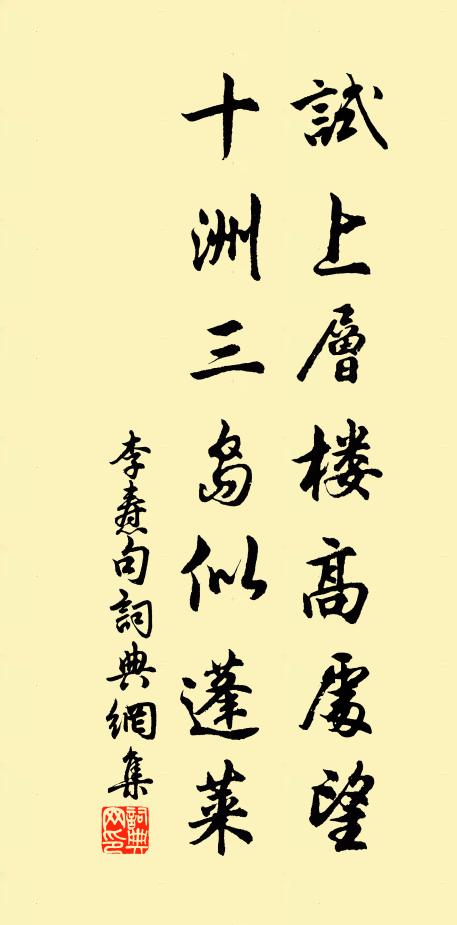 試上層楼高處望
十洲三島似蓬萊
李壽句詞典網集
詞典网印